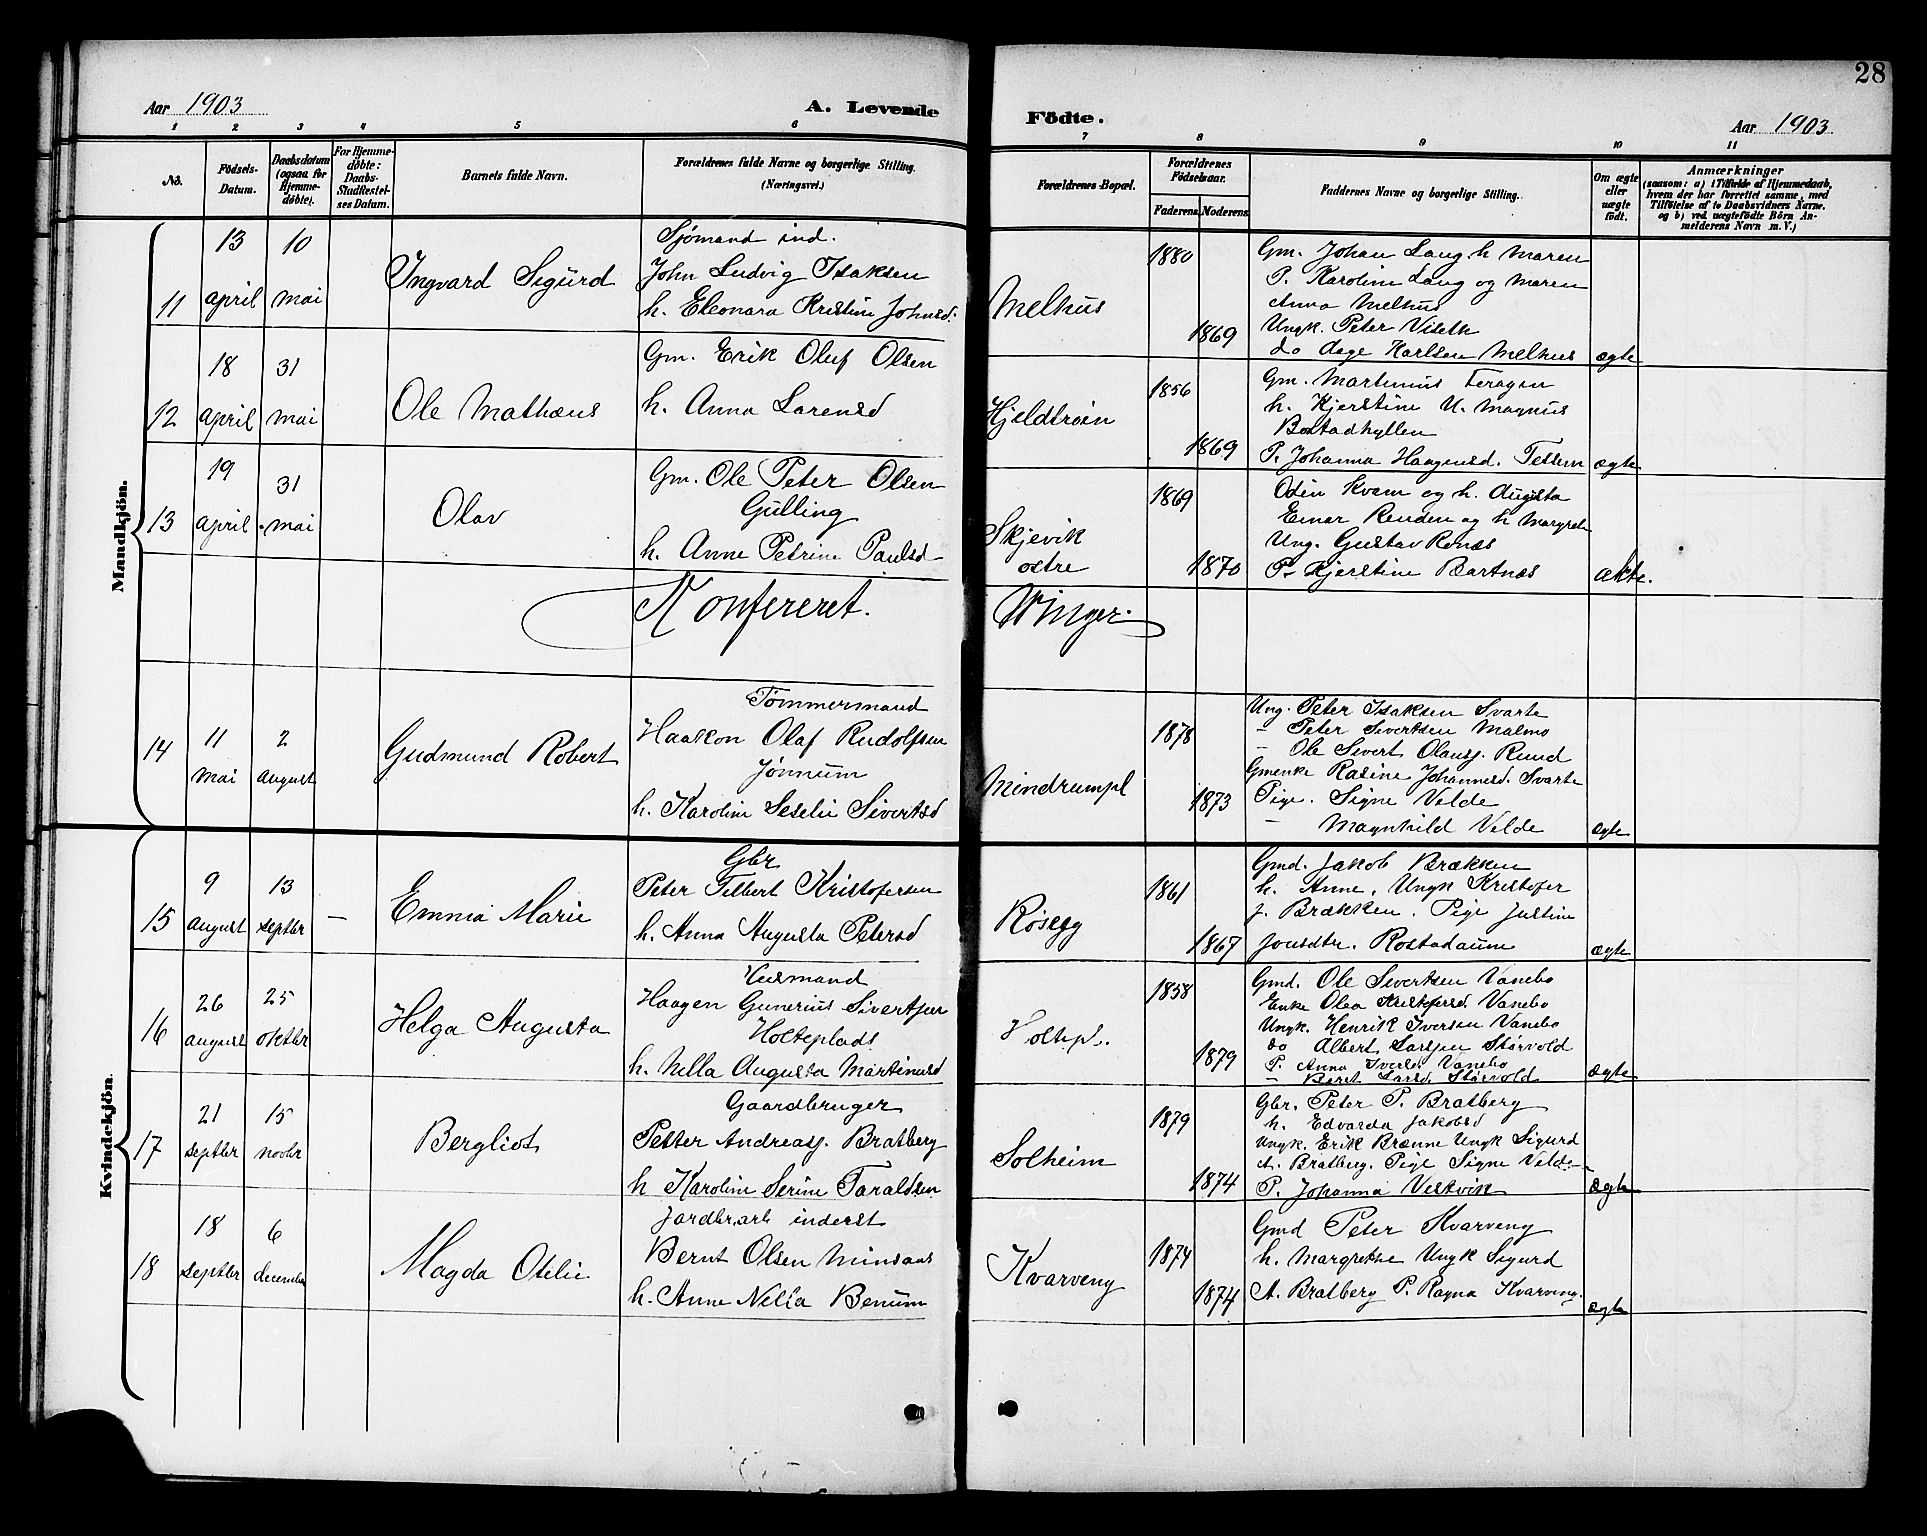 28
Aar 1903
A. Levende
Födte.
Aar 1903
1 2 3 4 5 6 7 8 9 10 11
No.
Födsels-
Datum.
Daabsdatum
(ogsaa for
Hjemme-
døbte).
For Hjemme-
døbte:
Daabs-
Stadfæstel-
ses Datum.
Barnets fulde Navn.
Forældrenes fulde Navne og borgerlige Stilling.
(Næringsvei.)
Forældrenes Bopæl.
Forældrenes
Födselsaar.
Faderens Moderens
Faddernes Navne og borgerlige Stilling.
Om ægte
eller
uægte
födt.
Anmærkninger
(saasom: a) i Tilfælde af Hjemmedaab,
hvem der har forrettet samme, med
Tilföielse af to Daabsvidners Navne.
og b) ved uægtefödte Börn An-
melderens Navn m. V.)
Mandkjön.
11
13
april
10
mai
Ingvard Sigurd
Sjømand ind.
John Ludvig Isaksen
h. Eleonara Kristine Johnsd.
Melhus
1880
1869
Gm. Johan Laug h. Maren
P. Karoline Laug og Maren
Anna Melhus
Ungk. Peter Viseth
do Aage Karlsen Melhus
ægte
12
18
april
31
mai
Ole Mathæus
Gm. Erik Oluf Olsen
h. Anna Larensd
Hjeldtrøin
1856
1869
Gm. Martinus Feragen
h. Kjerstine U. Magnus
Bostadhyllen
P. Johanna Haagensd. Tessem
ægte
13
19
april
31
mai
Olav
Gm. Ole Peter Olsen
Gulling
h. Anne Petrine Paulsd
Skjevik
østre
1869
1870
Odin Kvam og h. Augusta
Einar Renden og h Margrete
Ung. Gustav Renæs
P. Kjerstine Bartnæs
ækte.
Konfereret.
Winger.
14
11
mai
2
august
Gudmund Robert
Tømmermand
Haakon Olaf Rudolfsen
Jønnum
h. Karoline Seselie Sivertsd
Mindrumpl
1878
1873
Ung. Peter Isaksen Svarte
- Peter Sivertsen Malmo
- Ole Sivert Olaussj. Rund
Gmenke Rasine Johannesd. Svarte
Pige. Signe Velde
- Magnhild Velde
ægte
Kvindekjön.
15
9
august
13
septbr
-
Emma Marie
Gbr
Peter Filbert Kristofersen
h. Anna Augusta Petersd
Røsegg
1861
1867
Gmd. Jakob Brækken
h. Anne, Ungk Kristofer
J. Brækken. Pige Justine
Jonsdtr. Rostadaunn
ægte
16
26
august
25
oktbr
Helga Augusta
Veismand
Haagen Gunerius Sivertsen
Holteplads
h. Nella Augusta Martinusd
Holtepl.
1858
1879
Gmd. Ole Sivertsen Vanebo
Enke Olea Kristofersd Vanebo
Ungk. Henrik Iversen Vanebo
do Albert Larssen Størvold
P. Anna Iversd. Vanebo
- Beret Larsd. Størvold
ægte
17
21
septbr
15
novbr
Bergliot
Gaardbruger
Petter Andreasj. Bratberg
h Karoline Serine Taraldsen
Solheim
1879
1874
Gbr. Peter P. Bratberg
h. Edvarda Jakobsd
Ungk. Erik Brænne Ungk Sigurd
A. Bratberg. Pige Signe Velde
P. Johanna Vestvik
ægte
18
18
septbr
6
december
Magda Otilie
Jordbr.arb inderst
Bernt Olsen Minsaas
h. Anne Nelia Benum
Kvarveng
1874
1874
Gmd Peter Kvarveng
h. Margrethe Ungk Sigurd
A. Bratberg P. Ragna Kvarveng.
ægte